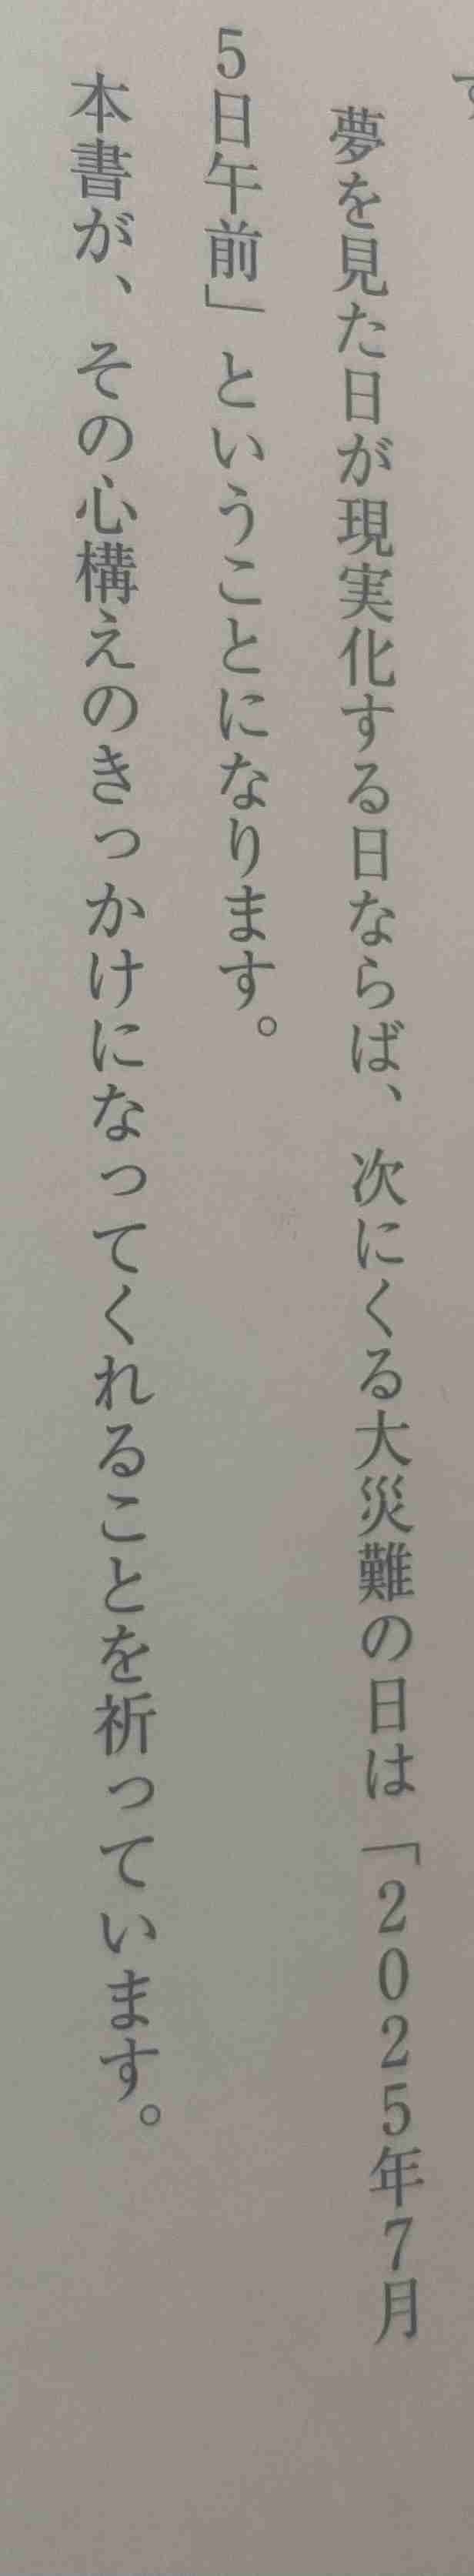 す
夢を見た日が現実化する日ならば、次にくる大災難の日は「2025年7月
5日午前」ということになります。
本書が、その心構えのきっかけになってくれることを祈っています。